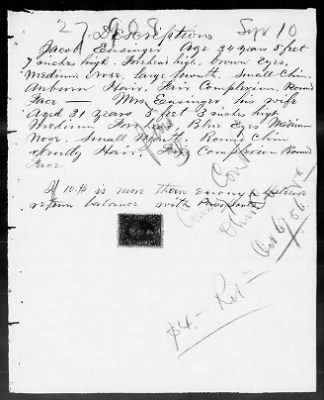 Descriptions Sep 10
Jacob Ensinger Age 34 years 5 feet
7 inches high. Forhead high. brown Eyes.
Medium Nose, large Mouth. Small Chin.
Auburn Hair. Fair Complexion. Round
Face — Mrs Ensinger, his wife
Aged 31 years 5 feet 3 inches high
Medium Forhead, Blue Eyes Medium
Nose. Small Mouth. Round Chin
Hair. Complexion Round
Face
If 10.$ is more than enough please
return balance with
$4.- Ret